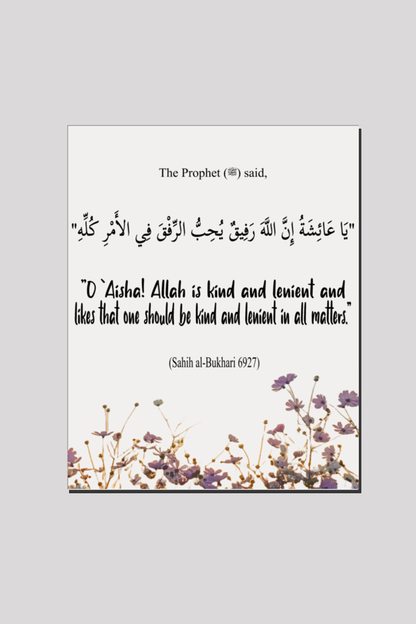 The Prophet (ﷺ) said,
"يَا عَائِشَةُ إِنَّ اللَّهَ رَفِيقٌ يُحِبُّ الرِّفْقَ فِي الأَمْرِ كُلِّهِ"
"O `Aisha! Allah is kind and lenient and
likes that one should be kind and lenient in all matters."
(Sahih al-Bukhari 6927)